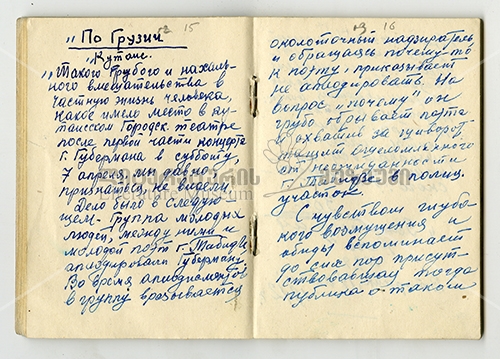 02 15
„По Грузии
„Кутаис.
„Такого грубого и нахаль-
ного вмешательства в
частную жизнь человека,
какое имело место в ку-
таисском городск. театре
после первой части концерта
г. Губермана в субботу
7 апреля, мы давно
признаться, не видели.
Дело было в следую-
щем. Группа молодых
людей, между ними и
молодой поэт г. Табидзе
аплодировали Губерману.
Во время аплодисментов
в группу врывается
03 16
околоточный надзиратель
и обращаясь почему-то
к поэту, приказывает
не аплодировать. На
вопрос „почему" он
грубо обрывает поэта
и схватив за шиворот
тащит ошеломленного
от неожиданности
г. Табидзе в полиц.
участок.
С чувством глубо-
кого возмущения и
обиды вспоминает
до сих пор присут-
ствовавшая тогда
публика о такой
ლიტერატურის მუზეუმი
Literature Museum